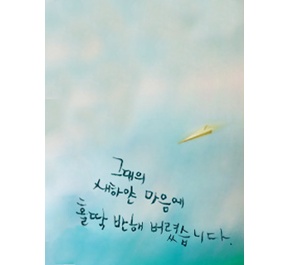 그대의
새하얀 마음에
홀딱 반해 버렸습니다.